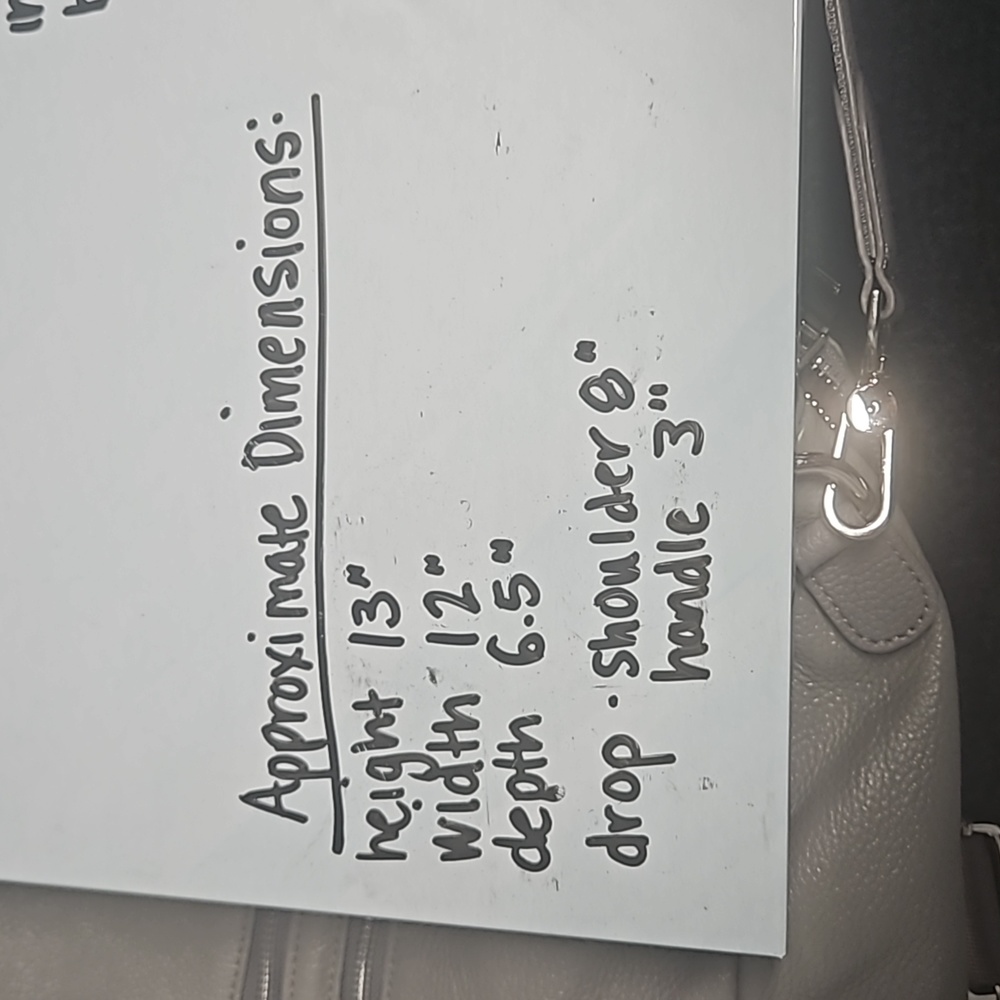 Approximate Dimensions:
height 13"
width 12"
depth 6.5"
drop - shoulder 8"
handle 3"